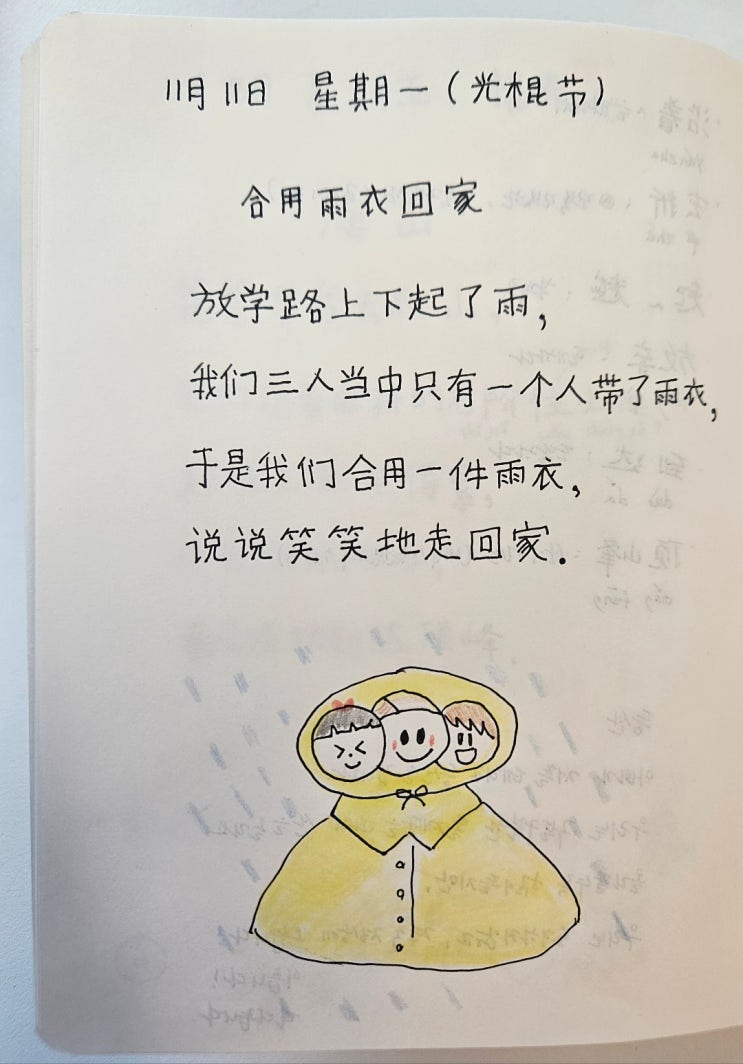 11月11日 星期一（光棍节）
合用雨衣回家
放学路上下起了雨，
我们三人当中只有一个人带了雨衣，
于是我们合用一件雨衣，
说说笑笑地走回家.